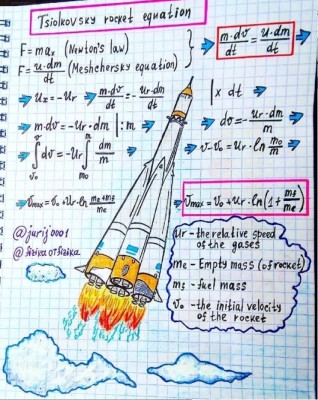 Tsiolkovsky rocket equation
F=maₓ (Newton's law)
F= u·dm/dt (Meshchersky equation)
m·dv/dt = u·dm/dt
uₓ=-ur m·dv/dt = -ur·dm/dt | x dt
m·dv=-ur·dm | :m dv= -ur·dm/m
∫dv=-ur∫dm/m v-v₀=ur·ln m₀/m
Vmax=v₀+ur·ln
Vmax=v₀+ur·ln(1+mf/me)
@jurij0001
ur -the relative speed
of the gases
me -Empty mass (of rocket)
mf -fuel mass
v₀ -the initial velocity
of the rocket